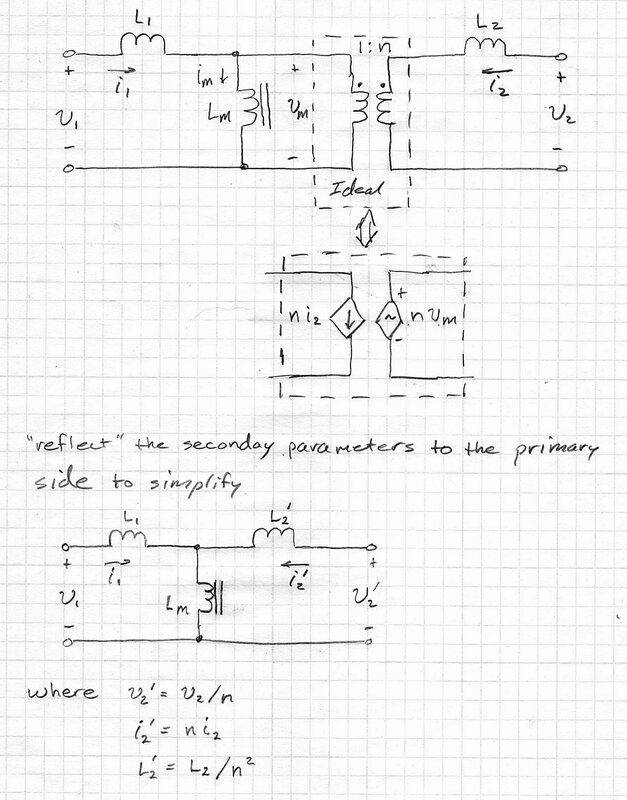 L₁ 1:n L₂
+ i₁ iₘ↓ + i₂ +
υ₁ Lₘ υₘ υ₂
- - -
Ideal
n i₂ ↓ + ~ n υₘ
-
"reflect" the seconday parameters to the primary
side to simplify
L₁ L₂'
+ i₁ i₂' +
υ₁ Lₘ υ₂'
- -
where υ₂' = υ₂/n
i₂' = n i₂
L₂' = L₂/n²